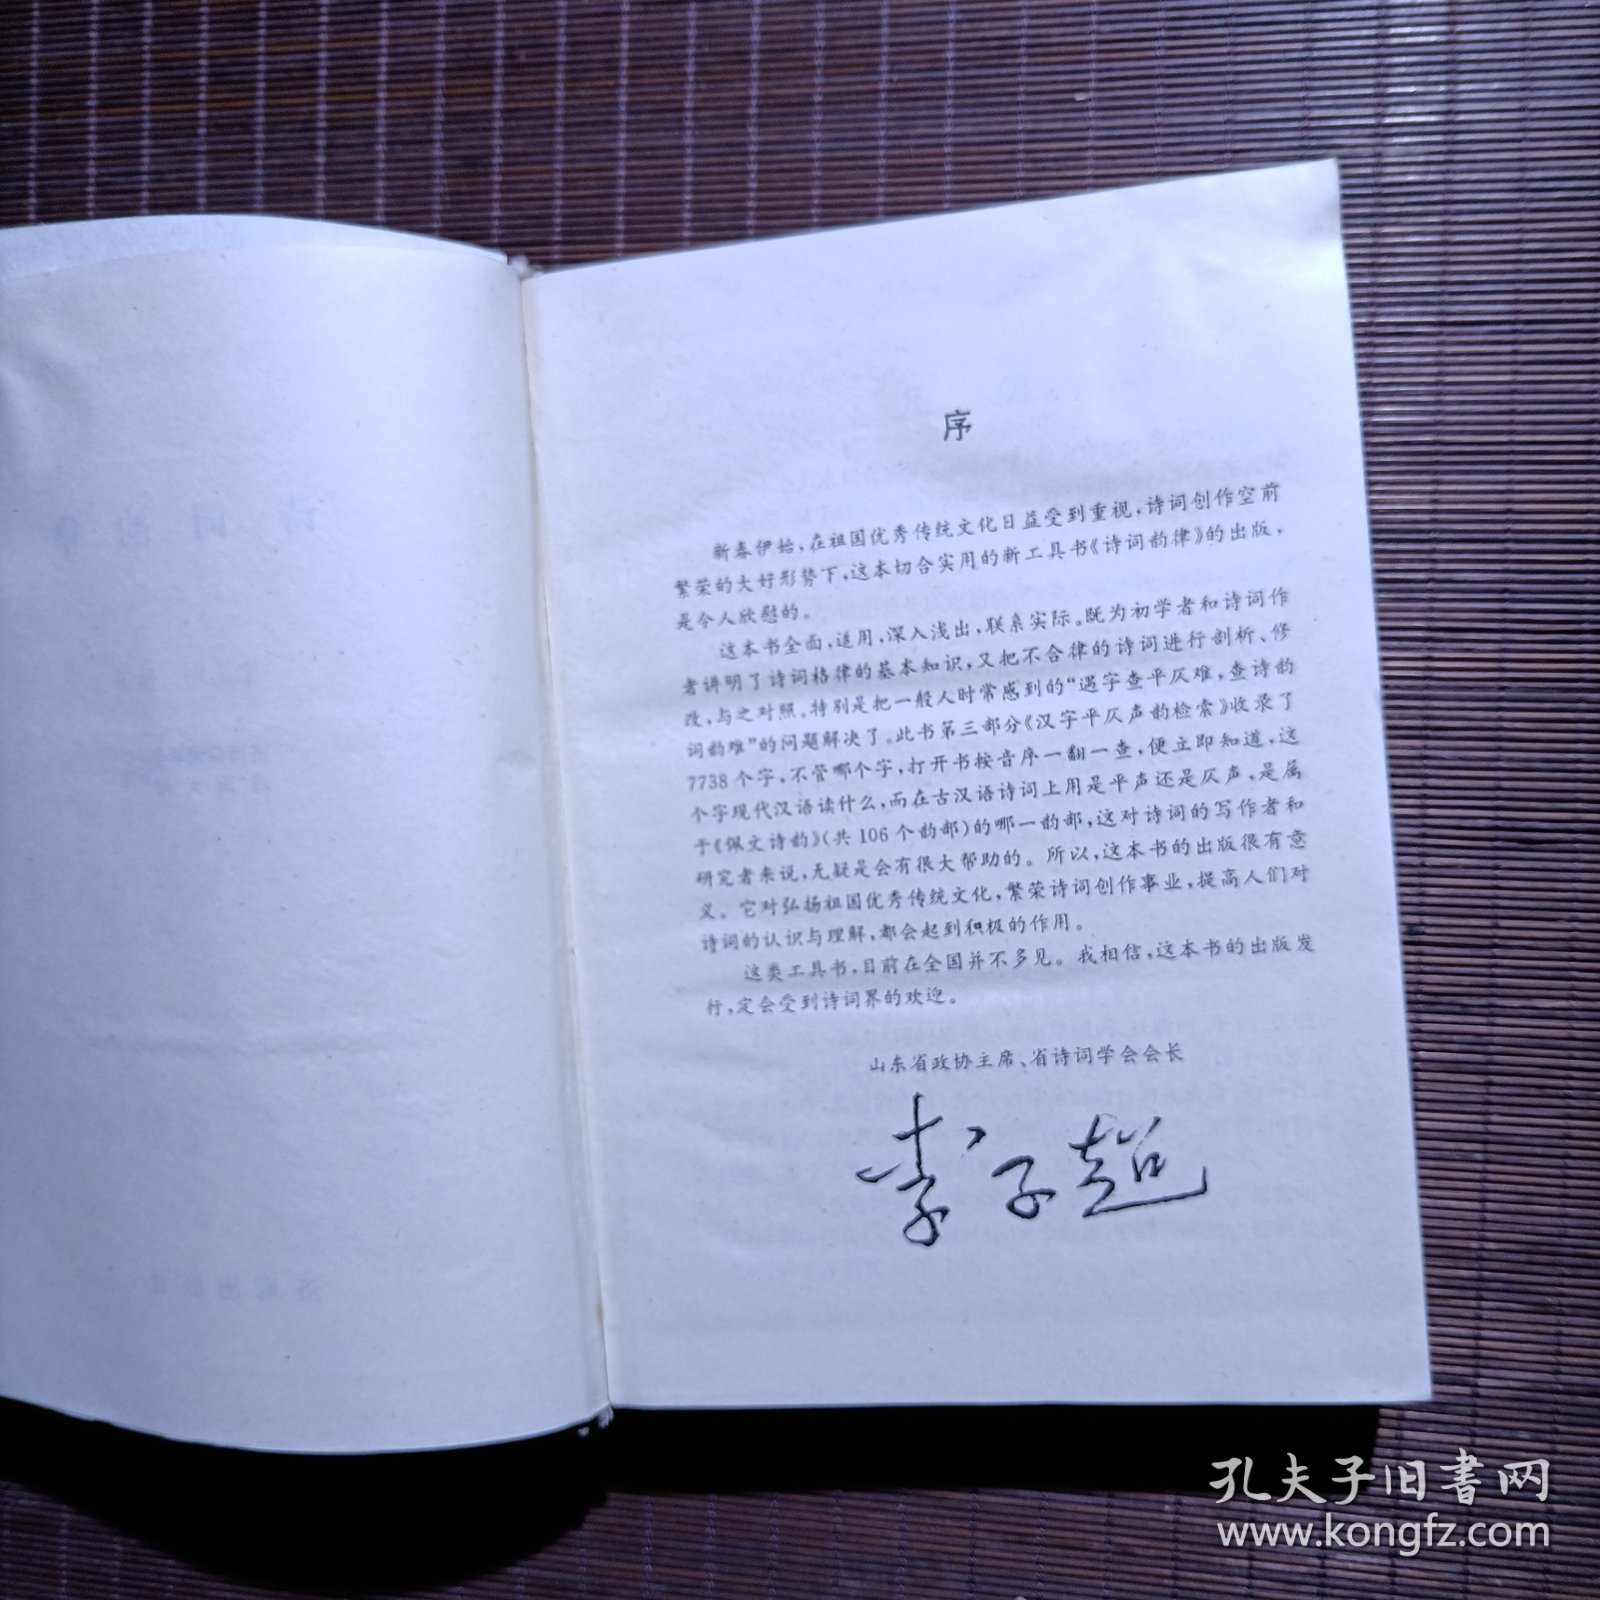 序
新春伊始，在祖国优秀传统文化日益受到重视，诗词创作空前
繁荣的大好形势下，这本切合实用的新工具书《诗词韵律》的出版，
是令人欣慰的。
这本书全面，适用，深入浅出，联系实际。既为初学者和诗词作
者讲明了诗词格律的基本知识，又把不合律的诗词进行剖析、修
改，与之对照。特别是把一般人时常感到的“遇字查平仄难，查诗韵
词韵难”的问题解决了。此书第三部分《汉字平仄声韵检索》收录了
7738个字，不管哪个字，打开书按音序一翻一查，便立即知道，这
个字现代汉语读什么，而在古汉语诗词上用是平声还是仄声，是属
于《佩文诗韵》（共106个韵部）的哪一韵部，这对诗词的写作者和
研究者来说，无疑是会有很大帮助的。所以，这本书的出版很有意
义。它对弘扬祖国优秀传统文化，繁荣诗词创作事业，提高人们对
诗词的认识与理解，都会起到积极的作用。
这类工具书，目前在全国并不多见。我相信，这本书的出版发
行，定会受到诗词界的欢迎。
山东省政协主席、省诗词学会会长
李子超
孔夫子旧书网
www.kongfz.com